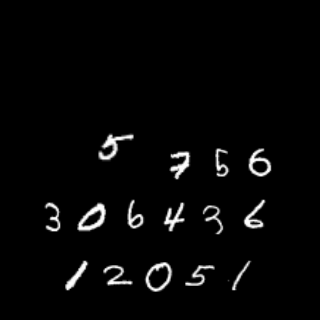 5 7 5 6
3 0 6 4 3 6
1 2 0 5 1